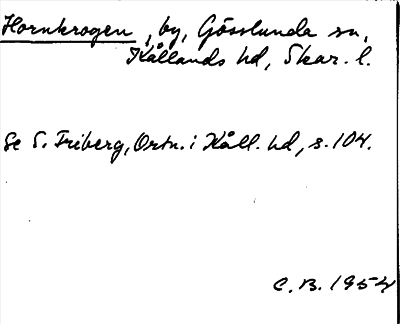 Hornkrogen, by, Gösslunda sn,
Kållands hd, Skar. l.
Se S. Friberg, Ortn. i Kåll. hd, s. 104.
C.B. 1954